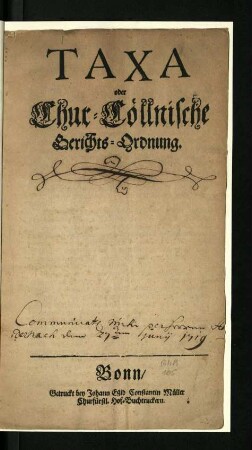 TAXA
oder
Chur-Cöllnische
Gerichts-Ordnung.
Communicatz
den 27 Junÿ 1719
Bonn/
Getruckt bey Johann Constantin Müller
Churfürstl. Hof-Buchtruckern.